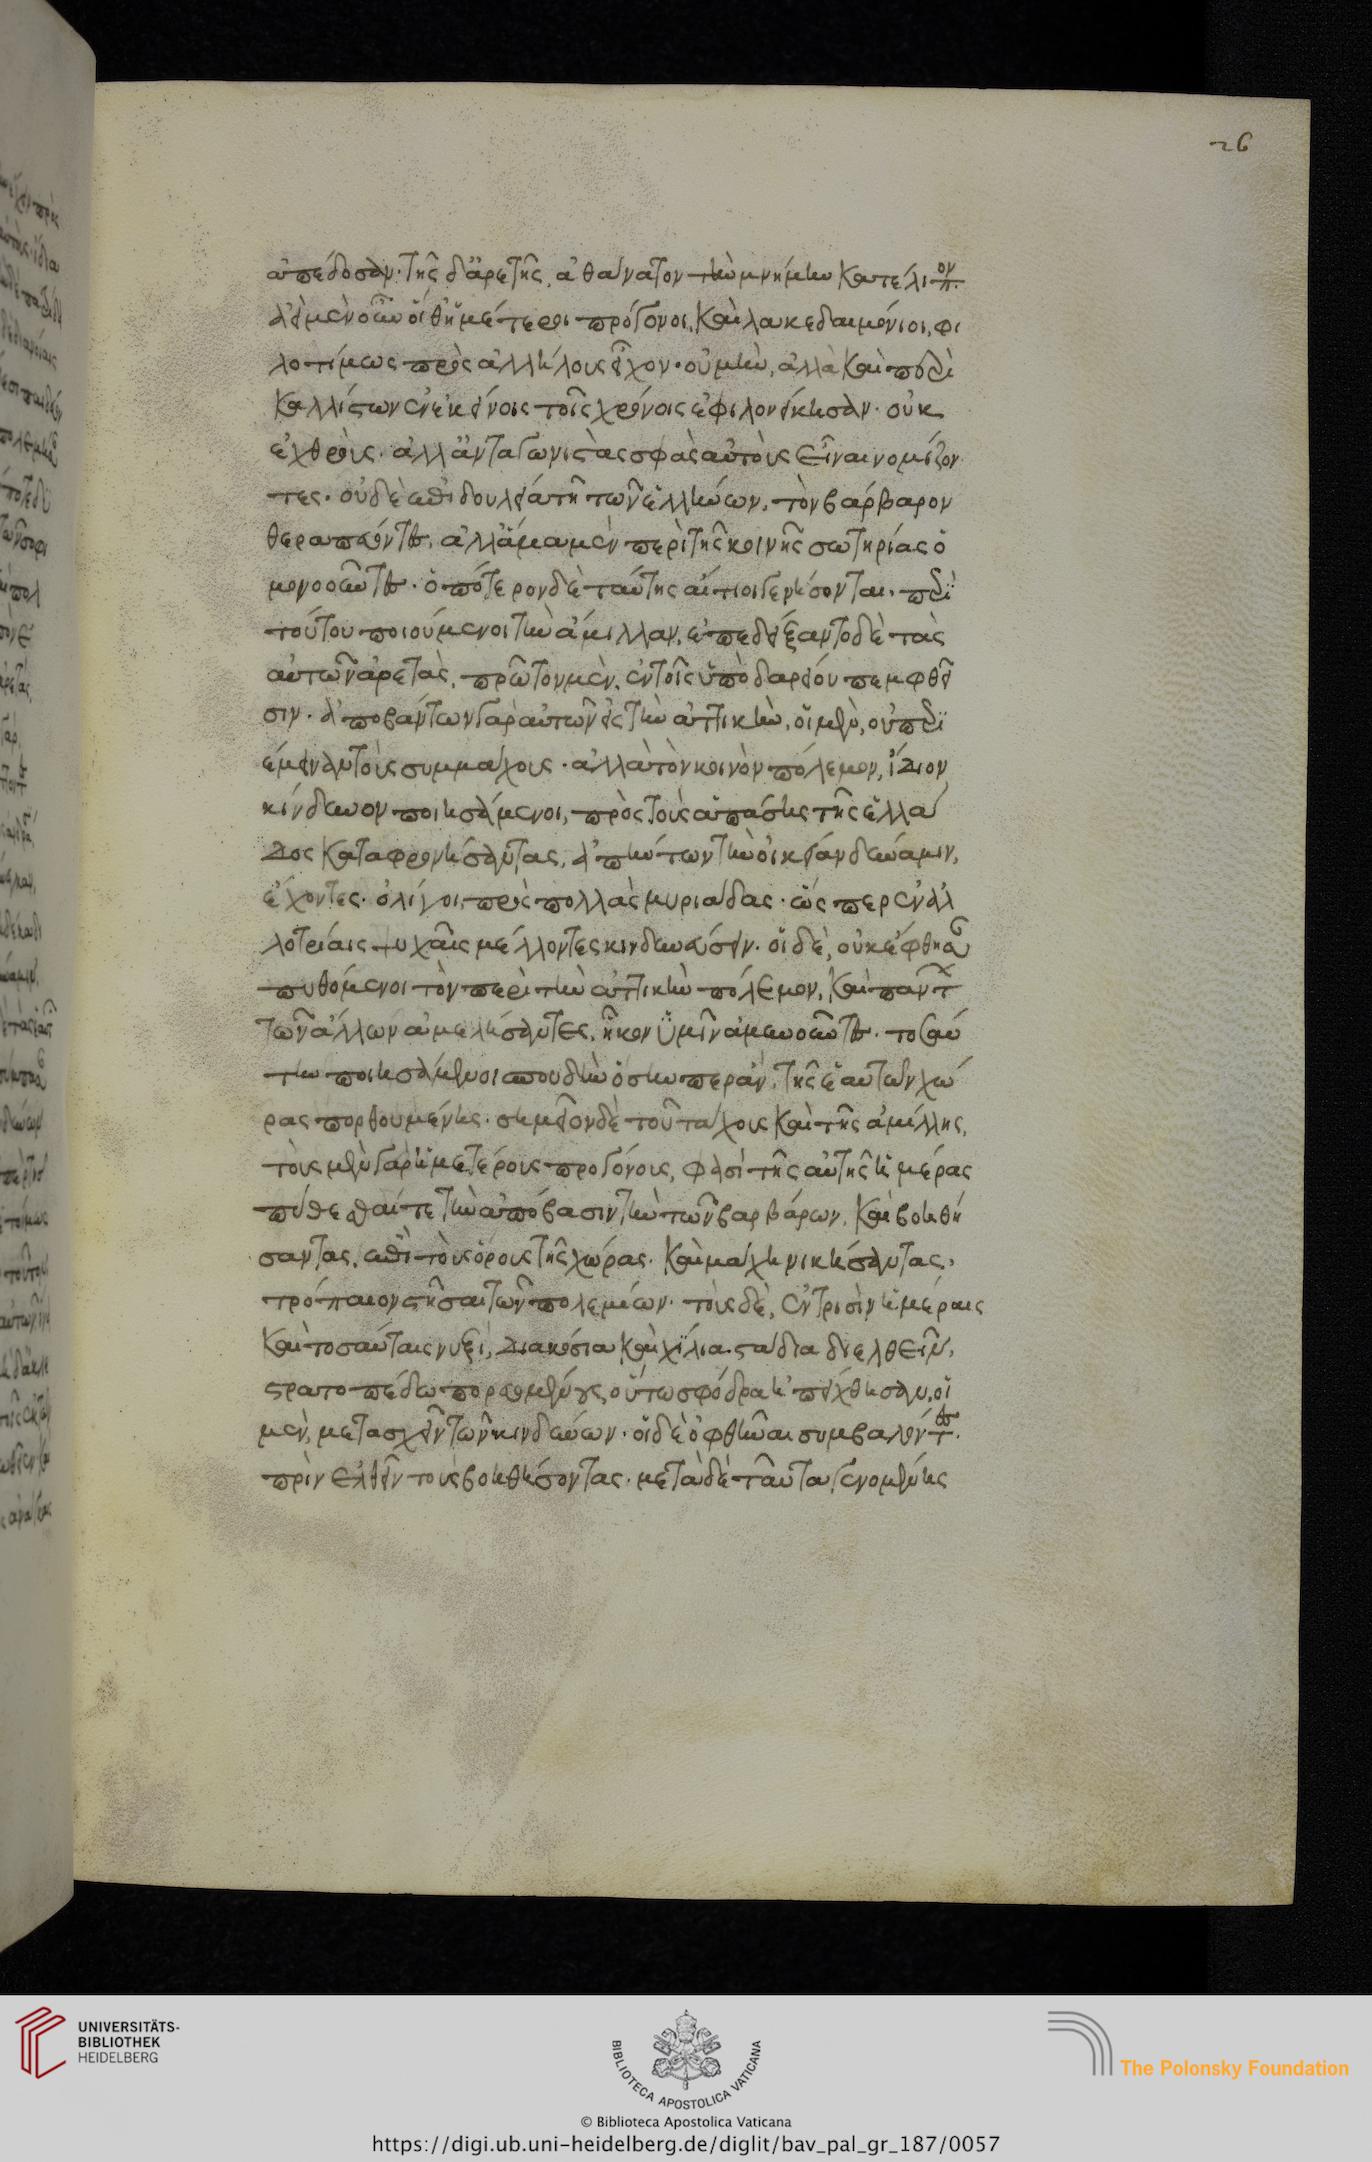 26
ἀπέδοσαν· τῆς δ' ἀρετῆς, ἀθάνατον τὴν μνήμην κατέλιπον.
ἀεὶ μὲν οὖν οἵ θ' ἡμέτεροι πρόγονοι, καὶ λακεδαιμόνιοι, φι
λοτίμως πρὸς ἀλλήλους εἶχον· οὐ μὴν, ἀλλὰ καὶ περὶ
καλλίστων ἐν ἐκείνοις τοῖς χρόνοις ἐφιλονείκησαν· οὐκ
ἐχθροὺς· ἀλλ' ἀνταγωνιστὰς σφᾶς αὐτοὺς εἶναι νομίζον
τες· οὐδ' ἐπὶ δουλείᾳ τῇ τῶν ἑλλήνων, τὸν βάρβαρον
θεραπεύοντες, ἀλλ' ἅμα μὲν περὶ τῆς κοινῆς σωτηρίας ὁ
μονοοῦντες· ὁπότερον δὲ ταύτης αἴτιοι γενήσονται, περὶ
τούτου ποιούμενοι τὴν ἅμιλλαν, ἐπεδείξαντο δὲ τὰς
αὐτῶν ἀρετὰς, πρῶτον μὲν, ἐν τοῖς ὑπὸ δαρείου πεμφθεῖ
σιν· ἀποβάντων γὰρ αὐτῶν εἰς τὴν ἀττικὴν, οἱ μὲν, οὐ περι
έμειναν τοὺς συμμάχους· ἀλλὰ τὸν κοινὸν πόλεμον, ἴδιον
κίνδυνον ποιησάμενοι, πρὸς τοὺς ἁπάσης τῆς ἑλλά
δος καταφρονήσαντας, ἀπήντων τὴν οἰκείαν δύναμιν,
ἔχοντες· ὀλίγοι, πρὸς πολλὰς μυριάδας· ὥς περ ἐν ἀλ
λοτρίαις ψυχαῖς μέλλοντες κινδυνεύσειν· οἱ δὲ, οὐκ ἔφθησαν
πυθόμενοι τὸν περὶ τὴν ἀττικὴν πόλεμον, καὶ πάντων
τῶν ἄλλων ἀμελήσαντες, ἧκον ὑμῖν ἀμυνοῦντες· τοσαύ
την ποιησάμενοι σπουδὴν ὅσην περ ἂν, τῆς ἑαυτῶν χώ
ρας πορθουμένης· σημεῖον δὲ τοῦ τάχους καὶ τῆς ἁμίλλης,
τοὺς μὲν γὰρ ἡμετέρους προγόνους, φασὶ τῆς αὐτῆς ἡμέρας
πυθέσθαί τε τὴν ἀπόβασιν τὴν τῶν βαρβάρων, καὶ βοηθή
σαντας, ἐπὶ τοὺς ὅρους τῆς χώρας· καὶ μάχῃ νικήσαντας,
τρόπαιον στῆσαι τῶν πολεμίων· τοὺς δὲ, ἐν τρισὶν ἡμέραις
καὶ τοσαύταις νυξὶ, διακόσια καὶ χίλια στάδια διελθεῖν,
στρατοπέδῳ πορευομένους οὕτω σφόδρα ἠπείχθησαν, οἱ
μὲν, μετασχεῖν τῶν κινδύνων· οἱ δὲ ὀφθῆναι συμβαλόντες.
πρὶν ἐλθεῖν τοὺς βοηθήσοντας· μετὰ δὲ ταῦτα γενομένης
UNIVERSITÄTS-
BIBLIOTHEK
HEIDELBERG
BIBLIOTECA APOSTOLICA VATICANA
The Polonsky Foundation
© Biblioteca Apostolica Vaticana
https://digi.ub.uni-heidelberg.de/diglit/bav_pal_gr_187/0057